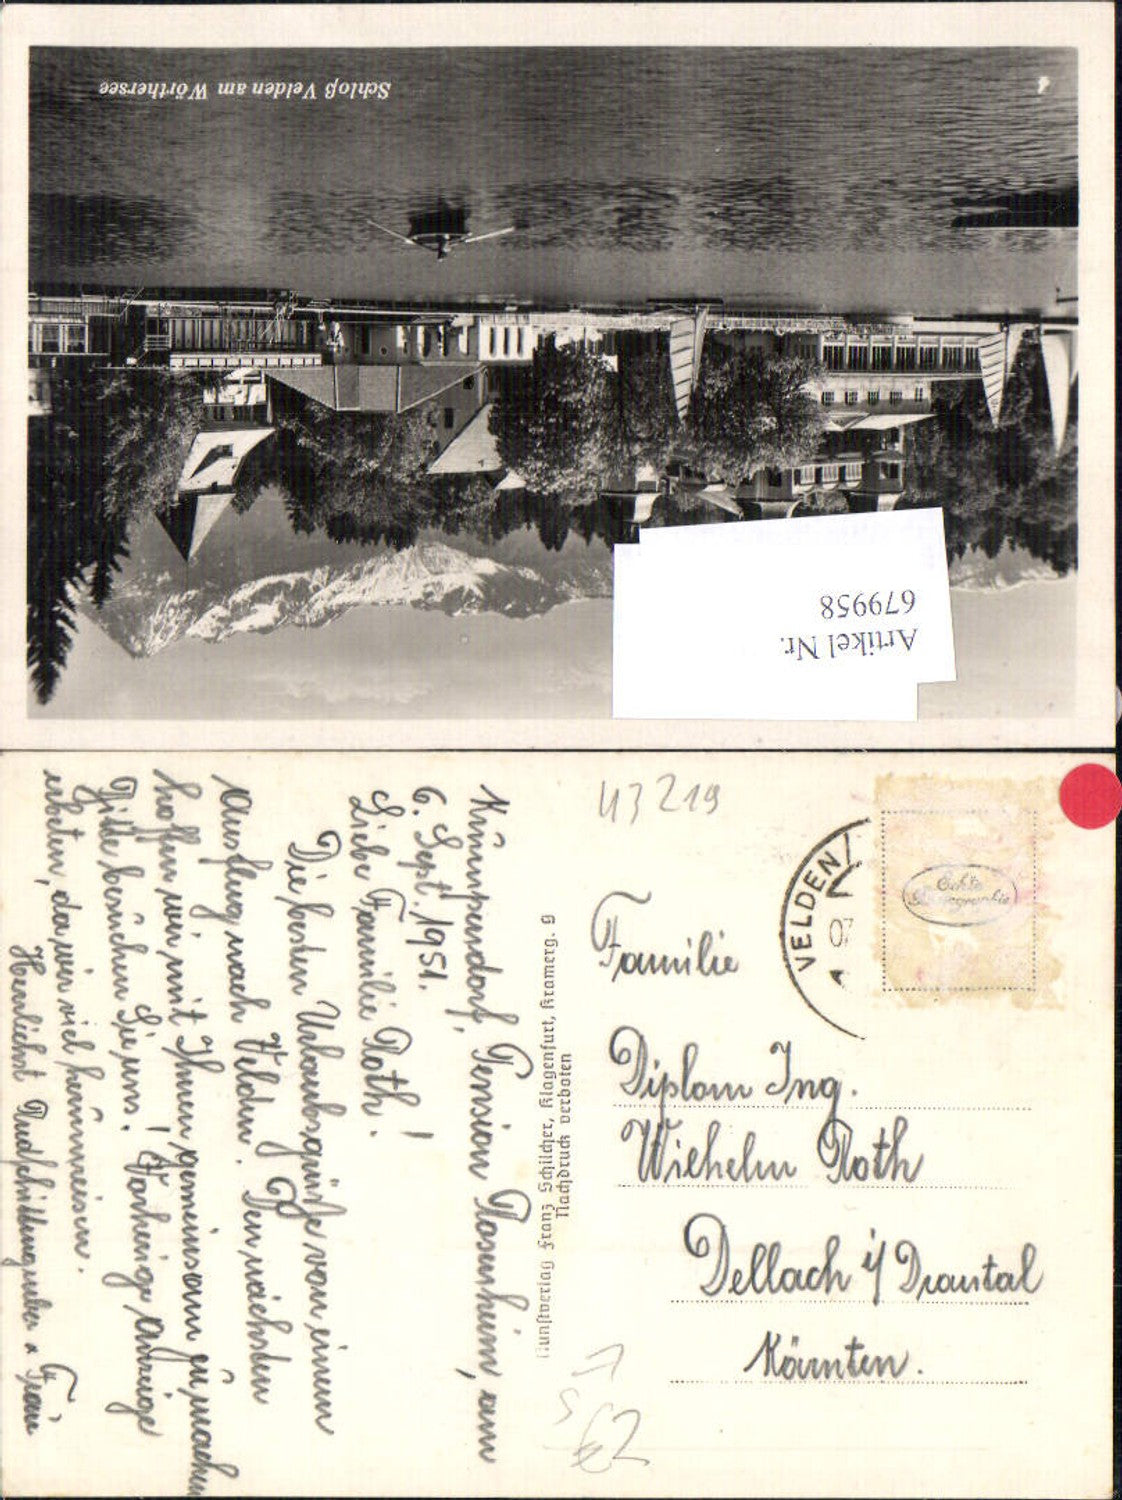 Schloß Velden am Wörthersee
4
Artikel Nr.
679958
43219
VELDEN
07
Echte
Krumpendorf, Pension Rosenheim, am
6. Sept. 1951.
Liebe Familie Roth!
Die besten Urlaubsgrüße von einem
Ausflug nach Velden. Den nächsten
hoffen wir mit Ihnen gemeinsam zu machen
Bitte besuchen Sie uns! Vorherige Anzeige
erbeten, da wir viel herumreisen.
Herzlichst
Kunstverlag Franz Schilcher, Klagenfurt, Kramerg. 9
Nachdruck verboten
Familie
Diplom Ing.
Wilhelm Roth
Dellach i/ Drautal
Kärnten.